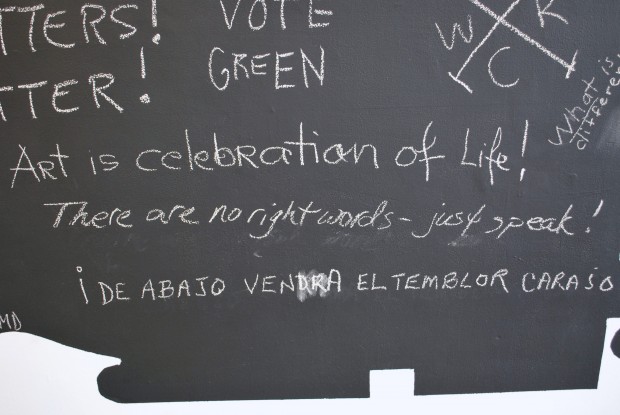 TTERS!
TTER!
VOTE
GREEN
W R
C
What is
differen
Art is celebration of Life!
There are no right words - just speak!
¡DE ABAJO VENDRA EL TEMBLOR CARAJO
MD